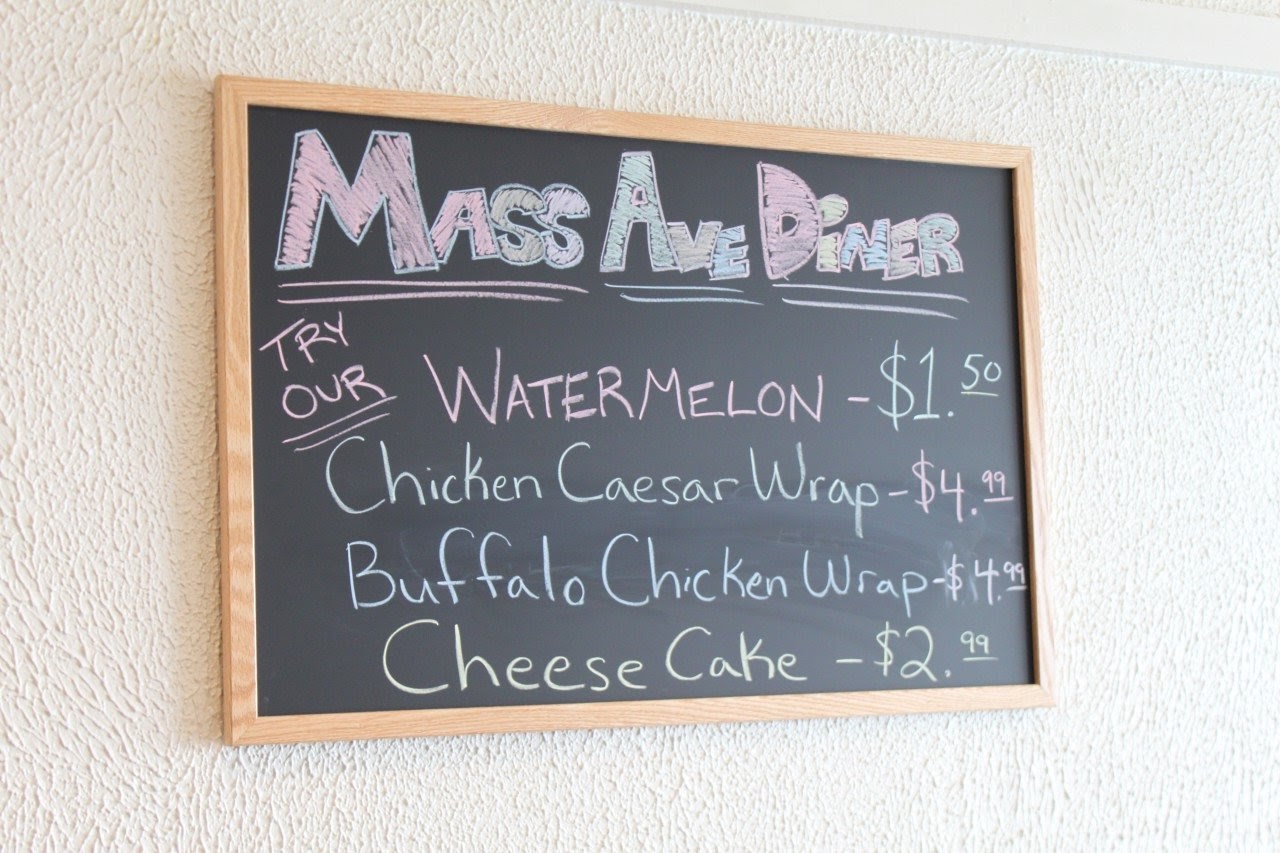 MASS AVE DiNER
TRY
OUR
WATERMELON - $1.50
Chicken Caesar Wrap - $4.99
Buffalo Chicken Wrap - $4.99
Cheese Cake - $2.99